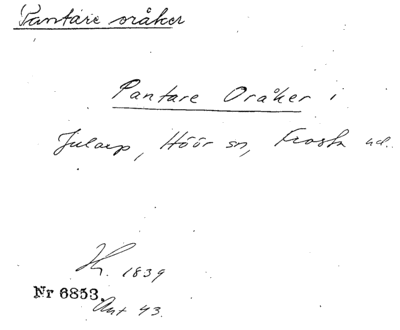 Pantare oråker
Pantare Oråker i
Julaup, Höör sn, Frosta hd.
K. 1839
Nr 6853.
Ant 43.